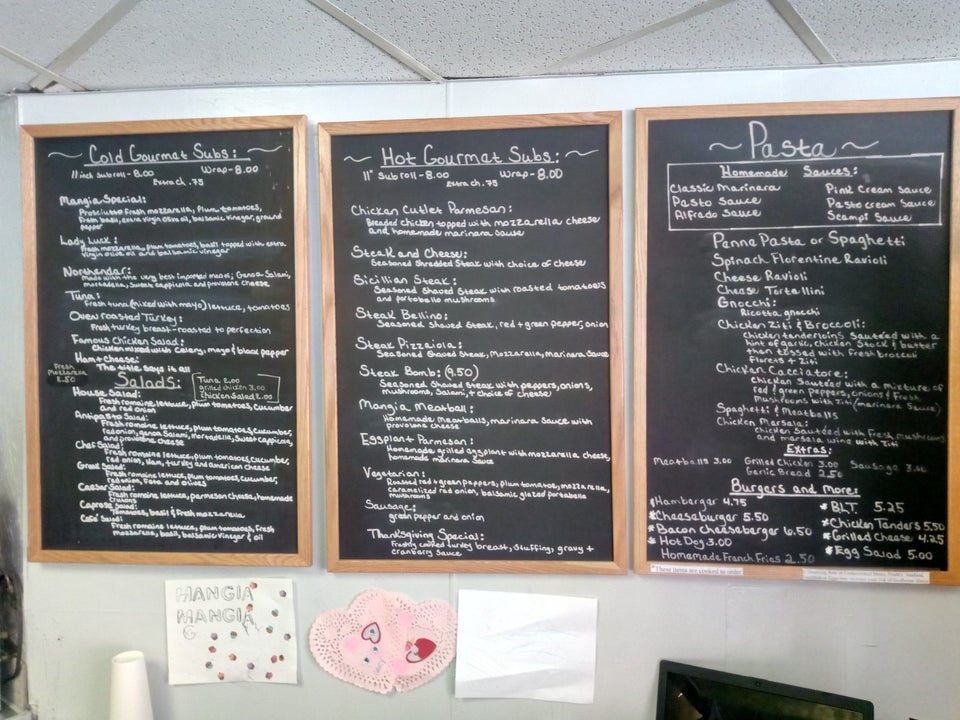 ~ Cold Gourmet Subs: ~
11 inch sub roll - 8.00 Wrap - 8.00
Extra ch .75
Mangia Special:
Prosciutto fresh mozzarella, plum tomatoes,
Fresh basil, extra virgin olive oil, balsamic vinegar, ground
pepper
Lady Luck:
Fresh mozzarella, plum tomatoes, basil topped with extra
virgin olive oil and balsamic vinegar
Northendar:
Made with the very best imported meats; Genoa Salami,
mortadella, Sweet cappicola and provlone cheese
Tuna:
Fresh tuna (mixed with mayo) lettuce, tomatoes
Oven roasted Turkey:
Fresh turkey breast-roasted to perfection
Famous Chicken Salad:
Chicken mixed with Celery, mayo & black pepper
Ham + cheese:
The title says it all
Fresh
Mozzarella
2.50
Salads:
Tuna 2.00
grilled chicken 3.00
Chicken Salad 2.00
House Salad:
Fresh romaine lettuce, plum tomatoes, cucumber
and red onion
Antipasto Salad:
Fresh romaine lettuce, plum tomatoes, Cucumber,
red onion, genoa Salami, mortadella, Sweet cappicola,
and provolone cheese
Chef Salad:
Fresh romaine lettuce, plum tomatoes, cucumber,
red onion, Ham, turkey and american cheese
Greek Salad:
Fresh romaine lettuce, plum tomatoes, cucumber,
red onion, Feta and olives
Caesar Salad:
Fresh romaine lettuce, parmesan cheese, homemade
croutons
Caprese Salad:
Tomatoes, basil & Fresh mozzarella
Cafe Salad:
Fresh romaine lettuce, plum tomatoes, fresh
mozzarella, basil, balsamic vinegar & oil
~ Hot Gourmet Subs: ~
11" Sub roll - 8.00 Wrap - 8.00
extra ch .75
Chicken Cutlet Parmesan:
Breaded chicken topped with mozzarella cheese
and homemade marinara sauce
Steak and Cheese:
Seasoned Shredded Steak with choice of cheese
Sicilian Steak:
Seasoned Shaved Steak with roasted tomatoes
and portobello mushrooms
Steak Bellino:
Seasoned shaved Steak, red + green pepper, onion
Steak Pizzaiola:
Seasoned Shaved Steak, Mozzarella, Marinara Sauce
Steak Bomb: (9.50)
Seasoned Shaved Steak with peppers, onions,
mushrooms, Salami, + choice of cheese)
Mangia Meatball:
Homemade meatballs, marinara Sauce with
provolone cheese
Eggplant Parmesan:
Homemade grilled eggplant with mozzarella cheese,
homemade marinara sauce
Vegetarian:
Roasted red + green peppers, plum tomatoe, mozzarella,
caramelized red onion, balsamic glazed portabella
mushrooms
Sausage:
green pepper and onion
Thanksgiving Special:
Freshly cooked turkey breast, Stuffing, gravy +
cranberry Sauce
~ Pasta ~
Homemade Sauces:
Classic Marinara Pink Cream Sauce
Pesto Sauce Pesto cream Sauce
Alfredo Sauce Scampi Sauce
Penne Pasta or Spaghetti
Spinach Florentine Ravioli
Cheese Ravioli
Cheese Tortellini
Gnocchi:
Ricotta gnocchi
Chicken Ziti & Broccoli:
Chicken tenderloins, Sautéed with a
hint of garlic, chicken Stock & butter
then tossed with fresh broccoli
Florets + Ziti
Chicken Cacciatore:
Chicken Sautéed with a mixture of
red & green peppers, onions & Fresh
Mushrooms with Ziti (marinara Sauce)
Spaghetti & Meatballs
Chicken Marsala:
Chicken Sautéed with Fresh mushrooms
and marsala wine with Ziti
Extras:
Meatballs 3.00 Grilled Chicken 3.00 Sausage 3.00
Garlic Bread 2.50
Burgers and more:
*Hamburger 4.75 *BLT 5.25
*Cheeseburger 5.50 *Chicken Tenders 5.50
*Bacon cheeseburger 6.50 *Grilled Cheese 4.25
*Hot Dog 3.00 *Egg Salad 5.00
Homemade French Fries 2.50
*These items are cooked to order
MANGIA
MANGIA
G